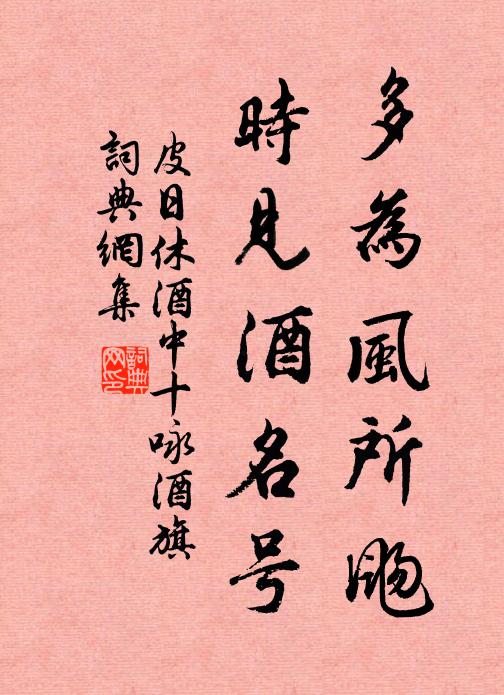 多為風所颺
時見酒名号
皮日休酒中十咏酒旗
詞典網集
詞典网印